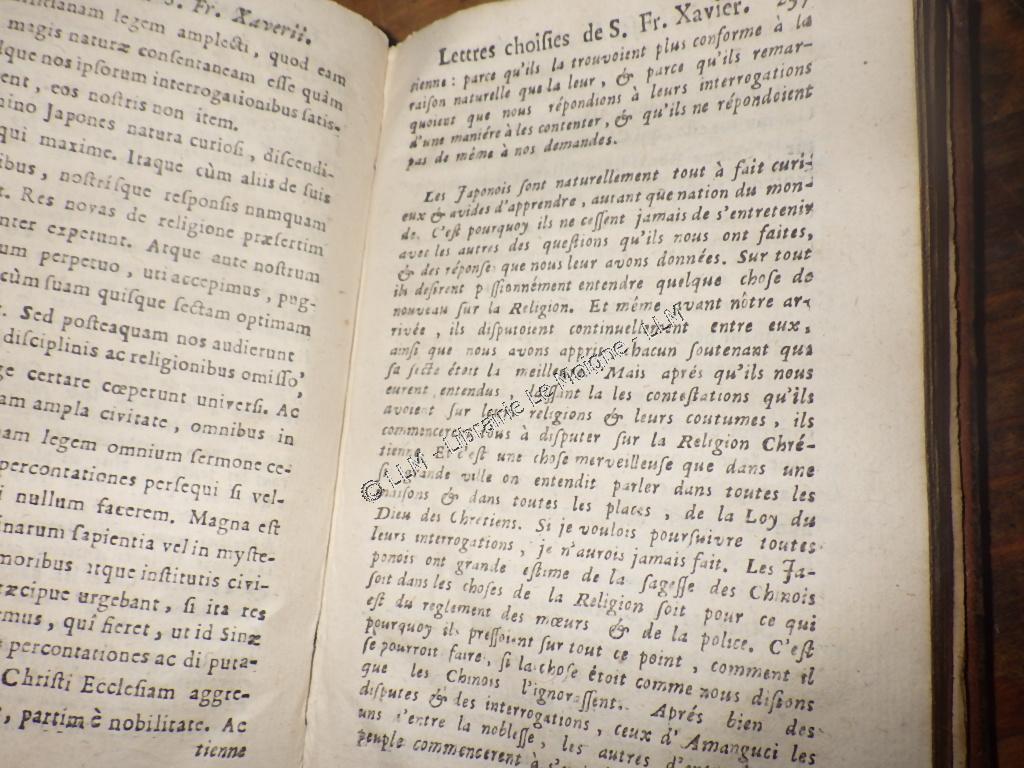 S. Fr. Xaverii.
legem amplecti, quod eam
magis naturæ consentaneam esse quàm
que nos ipsorum interrogationibus satis-
ent, eos nostris non item.
Japones natura curiosi, discendi-
qui maxime. Itaque cùm aliis de suis
ibus, nostrisque responsis nunquam
Res novas de religione præsertim
expetunt. Atque ante nostrum
perpetuo, uti accepimus, pug-
cùm suam quisque sectam optimam
Sed posteaquam nos audierunt
disciplinis ac religionibus omisso,
certare cœperunt universi. Ac
am ampla civitate, omnibus in
nam legem omnium sermone ce-
percontationes persequi si vel-
nullum facerem. Magna est
inarum sapientia vel in myste-
moribus atque institutis civi-
æcipue urgebant, si ita res
emus, qui fieret, ut id Sinæ
percontationes ac disputa-
Christi Ecclesiam aggre-
, partim è nobilitate. Ac
tienne
Lettres choisies de S. Fr. Xavier. 257
tienne : parce qu'ils la trouvoient plus conforme à la
raison naturelle que la leur, & parce qu'ils remar-
quoient que nous répondions à leurs interrogations
d'une maniére à les contenter, & qu'ils ne répondoient
pas de même à nos demandes.
Les Japonois sont naturellement tout à fait curi-
eux & avides d'apprendre, autant que nation du mon-
de. C'est pourquoy ils ne cessent jamais de s'entretenir
avec les autres des questions qu'ils nous ont faites,
& des réponses que nous leur avons données. Sur tout
ils desirent passionnément entendre quelque chose de
nouveau sur la Religion. Et même avant nôtre ar-
rivée, ils disputoient continuellement entre eux,
ainsi que nous avons appris, chacun soutenant que
sa secte étoit la meilleure. Mais aprés qu'ils nous
eurent entendus, laissant la les contestations qu'ils
avoient sur leurs religions & leurs coutumes, ils
commencerent tous à disputer sur la Religion Chré-
tienne. Et c'est une chose merveilleuse que dans une
si grande ville on entendit parler dans toutes les
maisons & dans toutes les places, de la Loy du
Dieu des Chrétiens. Si je voulois poursuivre toutes
leurs interrogations, je n'aurois jamais fait. Les Ja-
ponois ont grande estime de la sagesse des Chinois
soit dans les choses de la Religion soit pour ce qui
est du reglement des mœurs & de la police. C'est
pourquoy ils pressoient sur tout ce point, comment il
se pourroit faire, si la chose étoit comme nous disions
que les Chinois l'ignorassent. Aprés bien des
disputes & des interrogations, ceux d'Amanguci les
uns d'entre la noblesse, les autres d'entre
peuple commencerent à
© LLM - Librairie Le Moigne - LLM